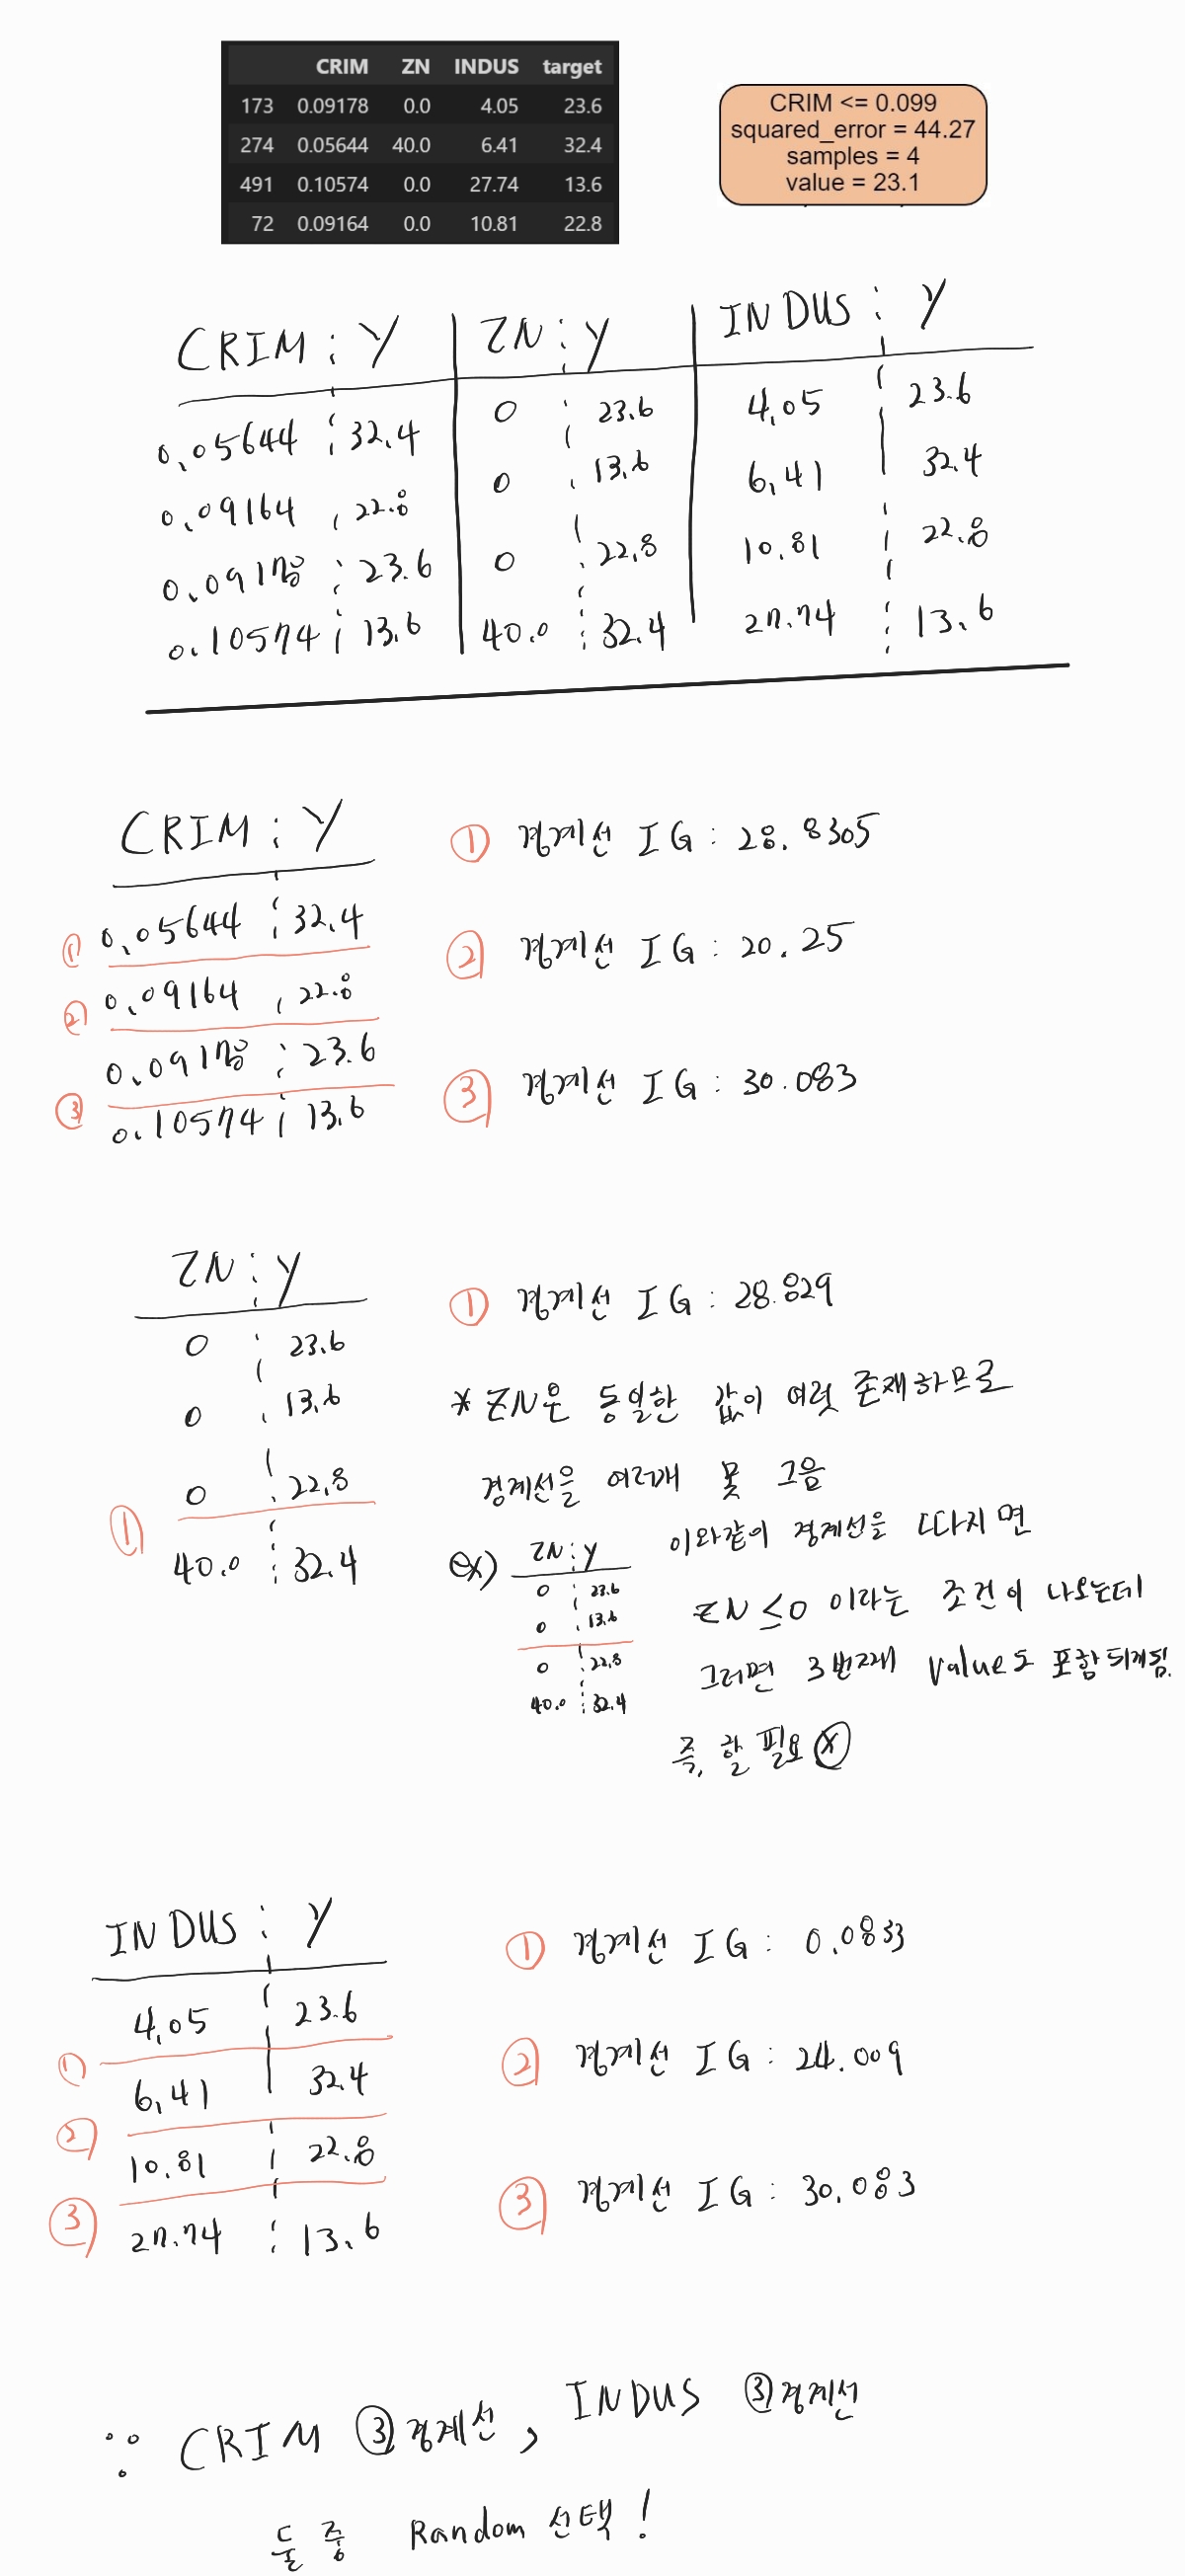 CRIM ZN INDUS target
173 0.09178 0.0 4.05 23.6
274 0.05644 40.0 6.41 32.4
491 0.10574 0.0 27.74 13.6
72 0.09164 0.0 10.81 22.8
CRIM <= 0.099
squared_error = 44.27
samples = 4
value = 23.1
CRIM Y ZN Y INDUS Y
0.05644 32.4 0 23.6 4.05 23.6
0.09164 22.8 0 13.6 6.41 32.4
0.09178 23.6 0 22.8 10.81 22.8
0.10574 13.6 40.0 32.4 27.74 13.6
CRIM Y
① 0.05644 32.4
② 0.09164 22.8
0.09178 23.6
③ 0.10574 13.6
① 경계선 IG : 28.8305
② 경계선 IG : 20.25
③ 경계선 IG : 30.083
ZN Y
0 23.6
0 13.6
0 22.8
①
40.0 32.4
① 경계선 IG : 28.829
* ZN은 동일한 값이 여럿 존재하므로
경계선을 여러개 못 그음
ex)
ZN Y
0 23.6
0 13.6
0 22.8
40.0 32.4
이와같이 경계선을 따지면
ZN ≤0 이라는 조건이 나오는데
그러면 3번째 value도 포함되게됨.
즉, 할 필요 X
INDUS Y
4.05 23.6
①
6.41 32.4
②
10.81 22.8
③
27.74 13.6
① 경계선 IG : 0.0833
② 경계선 IG : 24.009
③ 경계선 IG : 30.083
∵ CRIM ③경계선, INDUS ③경계선
둘 중 Random 선택!